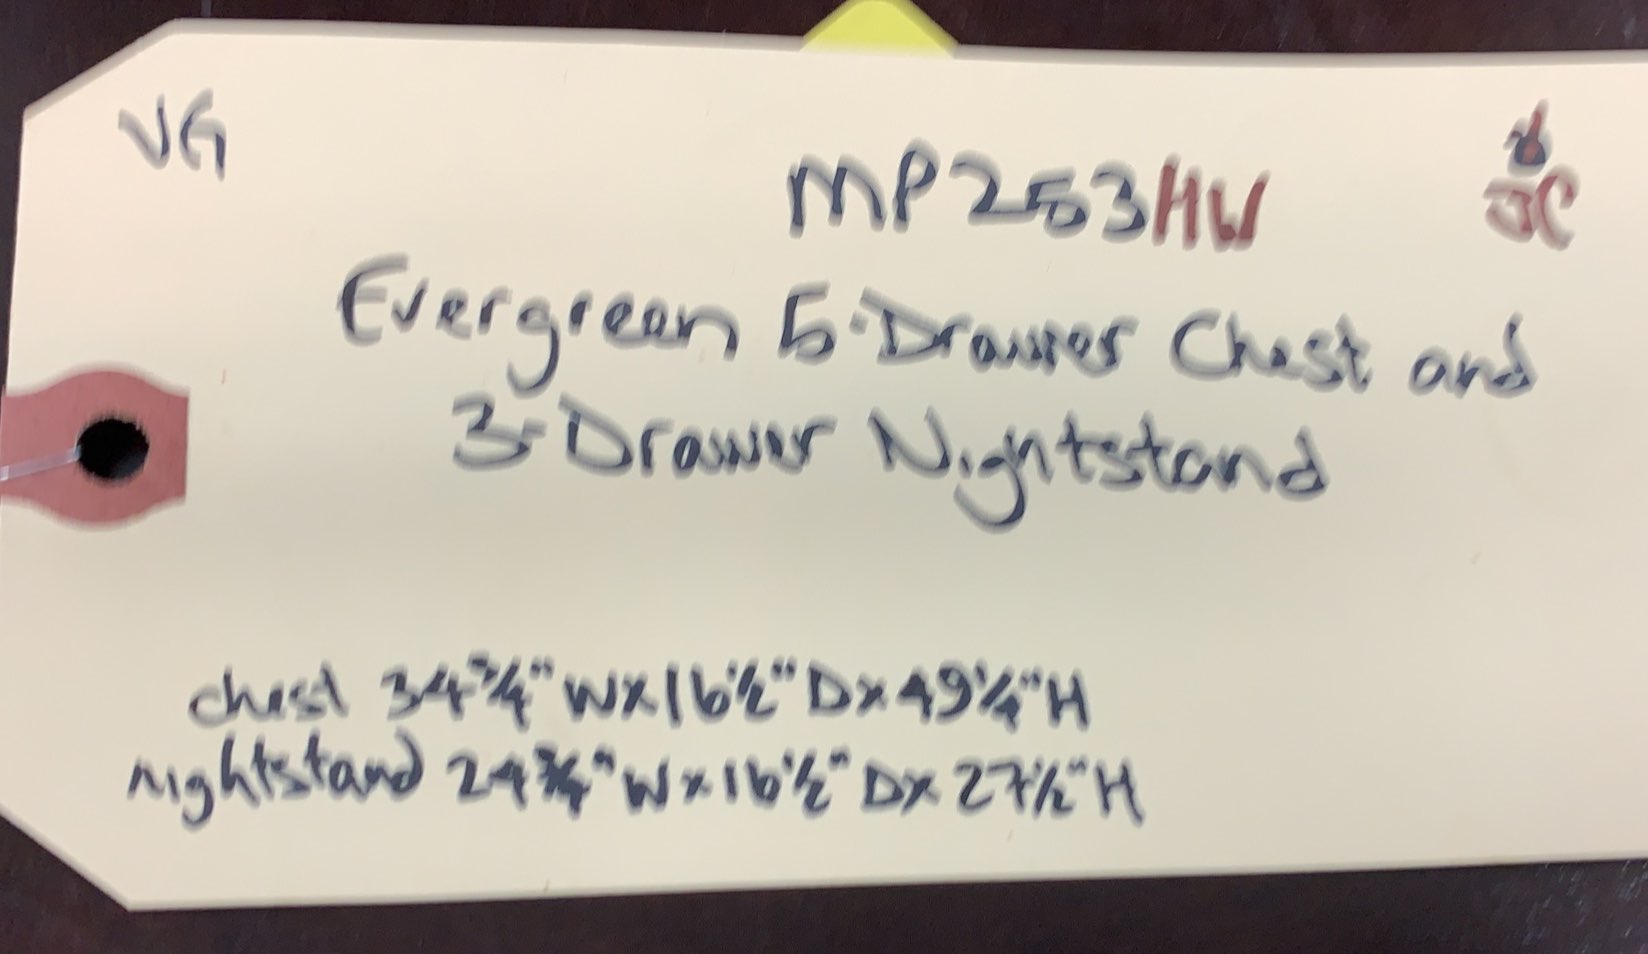 VG
MP253HW
JC
Evergreen 5-Drawer Chest and
3-Drawer Nightstand
chest 34 3/4" W x 16 1/2" D x 49 1/4" H
nightstand 24 3/4" W x 16 1/2" D x 27 1/2" H